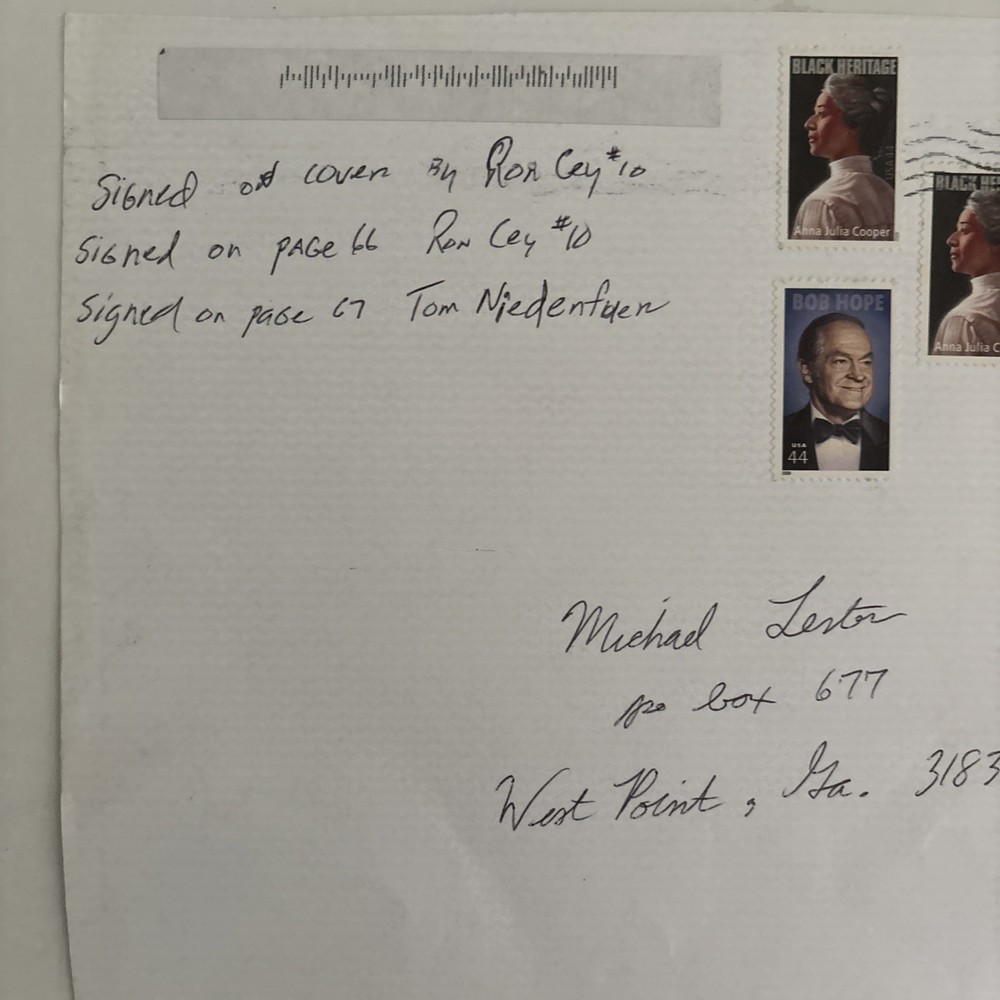 Signed on cover By Ron Cey #10
Signed on PAGE 66 Ron Cey #10
Signed on page 67 Tom Niedenfuer
BLACK HERITAGE
USA 44
Anna Julia Cooper
BLACK HE
Anna Julia C
BOB HOPE
USA
44
Michael Lester
po box 677
West Point, Ga. 3183